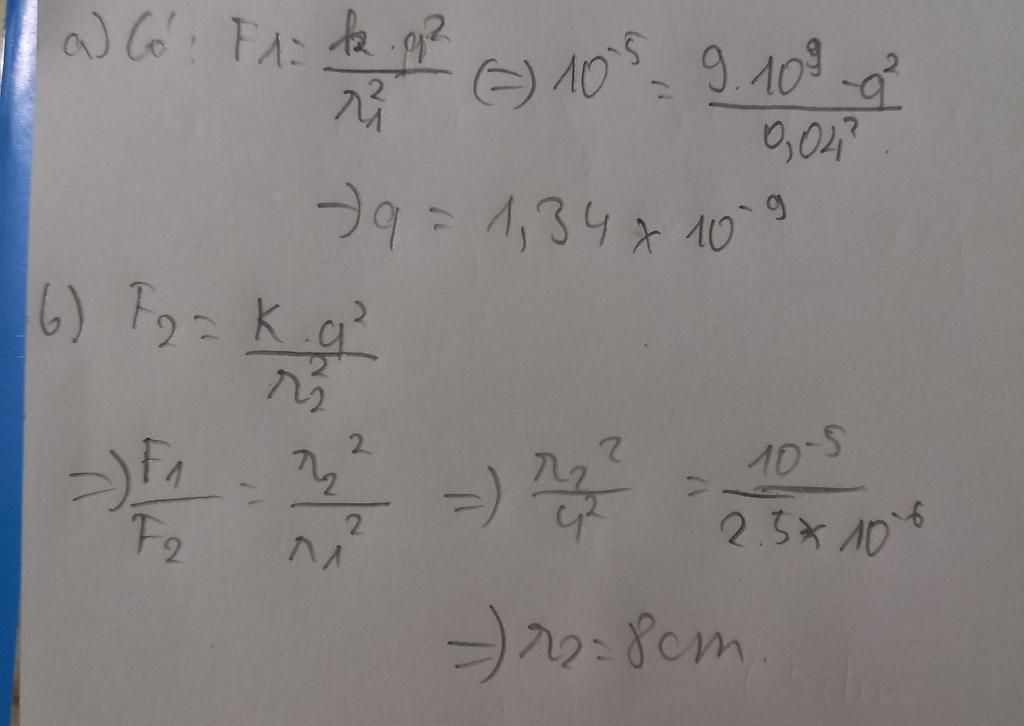 a) Có: F1 = k.q²/r₁² (=) 10⁻⁵ = 9.10⁹.q²/0,04²
→ q = 1,34 x 10⁻⁹
b) F₂ = K.q²/r₂²
=) F₁/F₂ = r₂²/r₁² =) r₂²/4² = 10⁻⁵/2.5x10⁻⁶
=) r₂ = 8cm.